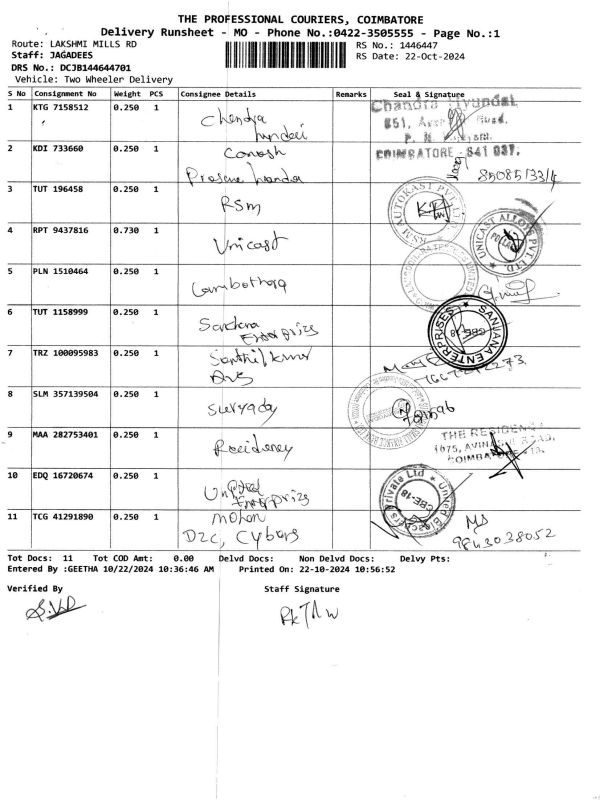 THE PROFESSIONAL COURIERS, COIMBATORE
Delivery Runsheet - MO - Phone No.:0422-3505555 - Page No.:1
Route: LAKSHMI MILLS RD
RS No.: 1446447
Staff: JAGADEES
RS Date: 22-Oct-2024
DRS No.: DCJB144644701
Vehicle: Two Wheeler Delivery
S No Consignment No Weight PCS Consignee Details Remarks Seal & Signature
1 KTG 7158512 0.250 1 Chandra
Hyundai
Chandra Hyundai
COIMBATORE - 641 037.
2 KDI 733660 0.250 1
3 TUT 196458 0.250 1 RSM
RSM AUTOKAST PVT. LTD.
4 RPT 9437816 0.730 1 Unicast
UNICAST ALLOYS PVT. LTD.
5 PLN 1510464 0.250 1
6 TUT 1158999 0.250 1
Enterprizes
SANJANA ENTERPRISES
7 TRZ 100095983 0.250 1
8 SLM 357139504 0.250 1
9 MAA 282753401 0.250 1 Residency
THE RESIDENCY
1075, AVINASHI ROAD,
COIMBATORE
10 EDQ 16720674 0.250 1 United
Enterprizes
CBE-18
11 TCG 41291890 0.250 1 Mohan
D2C, Cybers
9843038052
Tot Docs: 11 Tot COD Amt: 0.00 Delvd Docs: Non Delvd Docs: Delvy Pts:
Entered By :GEETHA 10/22/2024 10:36:46 AM Printed On: 22-10-2024 10:56:52
Verified By Staff Signature